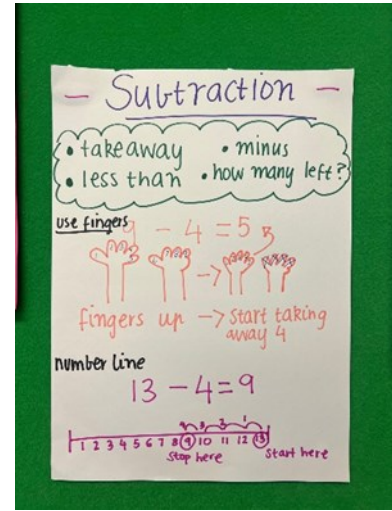 — Subtraction —
• takeaway • minus
• less than • how many left?
use fingers
9 - 4 = 5
fingers up -> start taking
away 4
number line
13 - 4 = 9
4 3 2 1
1 2 3 4 5 6 7 8 9 10 11 12 13
stop here start here